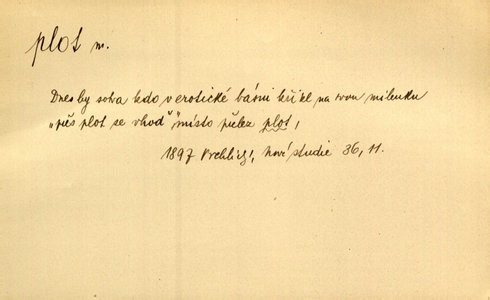 plot m.
Dnes by sotva kdo v erotické básni křikl na svou milenku
„přes plot se vhoď“ místo přelez plot,
1897 Vrchlický, Nové studie 36, 11.